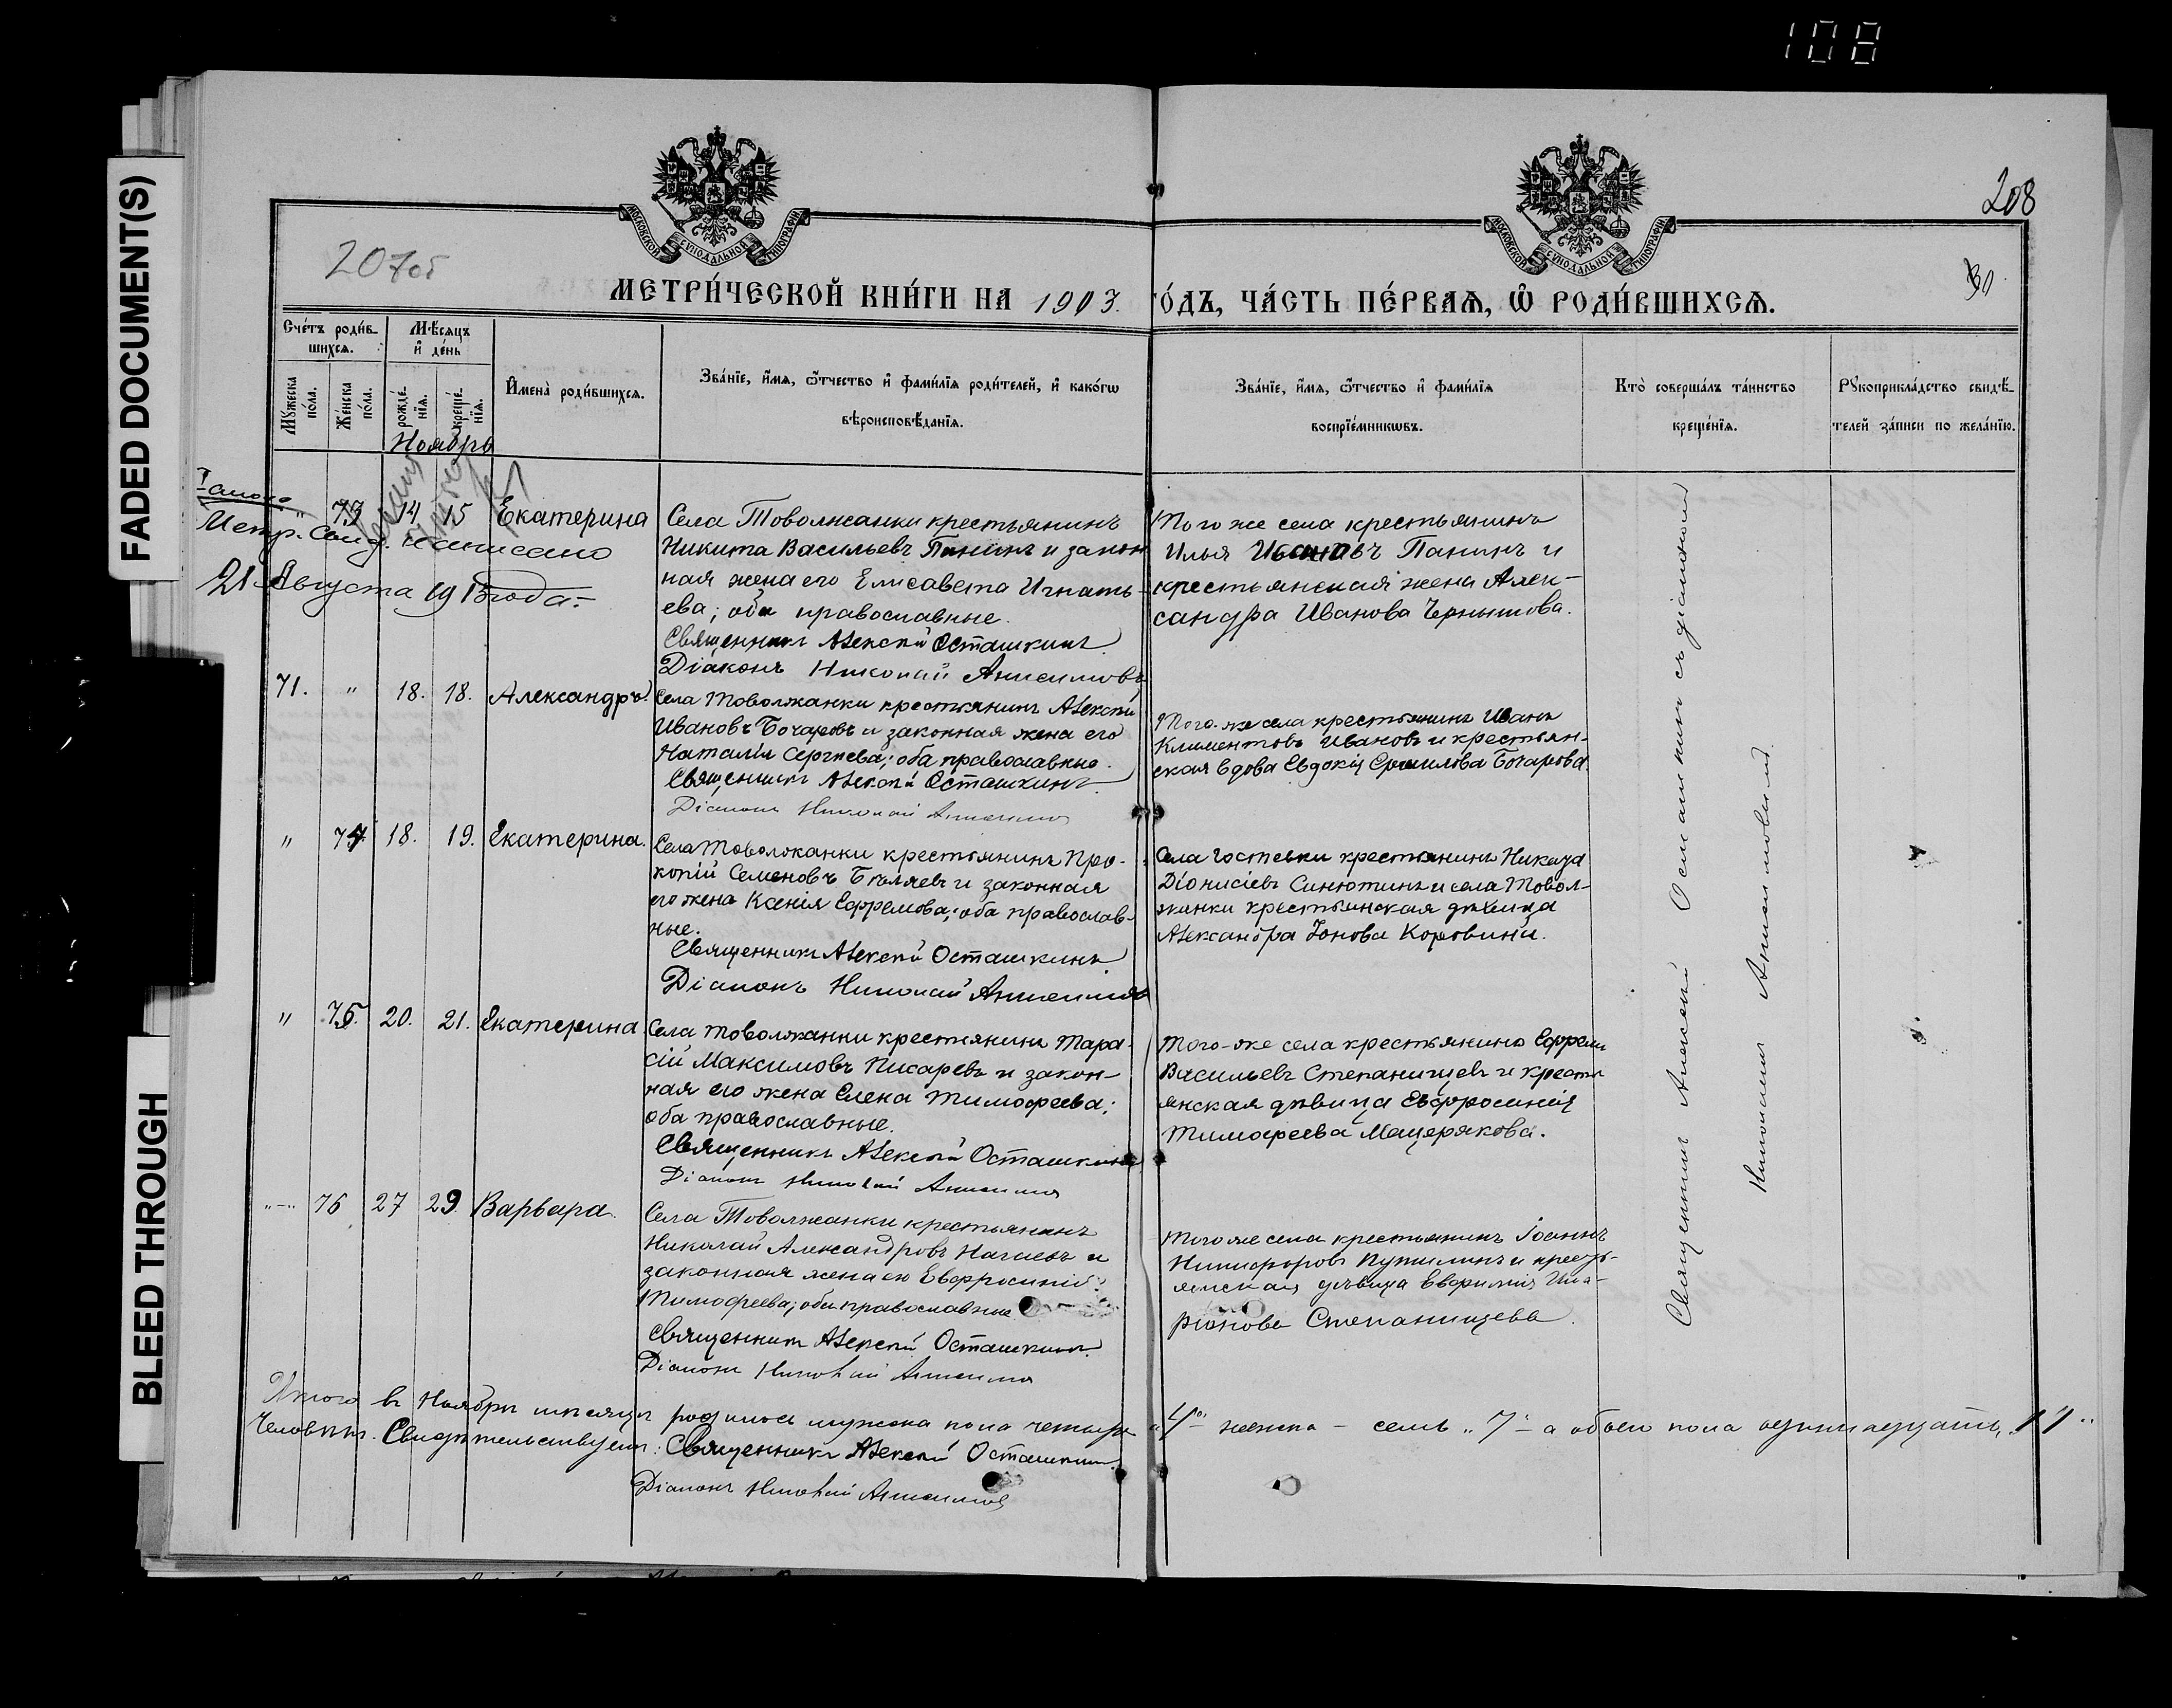 108
FADED DOCUMENT(S)
BLEED THROUGH
208
207об
30
МОСКОВСКОЙ СѴНОДАЛЬНОЙ ТИПОГРАФІИ
МОСКОВСКОЙ СѴНОДАЛЬНОЙ ТИПОГРАФІИ
МЕТРИ́ЧЕСКОЙ КНИ́ГИ НА 1903. ГО́ДЪ, ЧА́СТЬ ПЕ́РВАѦ, Ѡ҆ РОДИ́ВШИХСѦ.
Сче́тъ роди́в-
шихсѧ.
Мѣ́сѧцъ
и҆ де́нь
Мꙋ́жеска
по́ла.
Же́нска
по́ла.
рожде́-
нїѧ.
креще́-
нїѧ.
И҆мена̀ роди́вшихсѧ.
Зва́нїе, и҆́мѧ, ѻ҆́тчество и҆ фами́лїѧ роди́телей, и҆ како́гѡ
вѣроисповѣ́данїѧ.
Зва́нїе, и҆́мѧ, ѻ҆́тчество и҆ фами́лїѧ
воспрїе́мникѡвъ.
Кто̀ соверша́лъ та́инство
креще́нїѧ.
Рꙋкоприкла́дство свидѣ́-
телей за́писи по жела́нїю.
Ноябрь
Метр. Свид. написано
21 Августа 1913 года.
" 73 14 15 Екатерина
Села Товолжанки крестьянинъ
Никита Васильевъ Панинъ и закон
ная жена его Елисавета Игнать-
ева; оба православные.
Священникъ Алексѣй Осташкинъ.
Діаконъ Николай Анисимовъ
Того же села крестьянинъ
Илья Ивановъ Панинъ и
крестьянская жена Алек-
сандра Иванова Чернышова.
71. " 18. 18. Александръ.
Села Товолжанки крестьянинъ Алексѣй
Ивановъ Бочаровъ и законная жена его
Наталія Сергѣева; оба православные.
Священникъ Алексѣй Осташкинъ.
Діаконъ Николай Анисимовъ
Того-же села крестьянинъ Иванъ
Климентовъ Ивановъ и крестьян-
ская вдова Евдокія Ермилова Бочарова.
" 74. 18. 19. Екатерина.
Села Товолжанки крестьянинъ Про-
копій Семеновъ Бѣляевъ и законная
его жена Ксенія Ефремова; оба православ-
ные.
Священникъ Алексѣй Осташкинъ.
Діаконъ Николай Анисимовъ
Села Гостевки крестьянинъ Николай
Діонисіевъ Синютинъ и села Товол-
жанки крестьянская дѣвица
Александра Іонова Коровина.
" 75. 20. 21. Екатерина
Села Товолжанки крестьянинъ Тара-
сій Максимовъ Писаревъ и закон-
ная его жена Елена Тимофеева;
оба православные.
Священникъ Алексѣй Осташкинъ
Діаконъ Николай Анисимовъ
Того-же села крестьянинъ Ефремъ
Васильевъ Степанищевъ и кресть
янская дѣвица Евфросинія
Тимофеева Мащерякова.
"-" 76 27 29 Варвара.
Села Товолжанки крестьянинъ
Николай Александровъ и
законная жена его Евфросинія
Тимофеева; оба православные
Священникъ Алексѣй Осташкинъ.
Діаконъ Николай Анисимовъ
Того же села крестьянинъ Іоаннъ
Никифоровъ Путилинъ и кресть-
янская дѣвица Евфимія Ила-
ріонова Степанищева.
Священникъ Алексѣй Осташкинъ съ діакономъ
Николаемъ Анисимовымъ.
Итого въ Ноябрѣ мѣсяцѣ родилось мужска пола четыре „4" женска – семь „7" – а обоего пола одиннадцать „11"
Человѣкъ. Свидѣтельствуемъ: Священникъ Алексѣй Осташкинъ.
Діаконъ Николай Анисимовъ